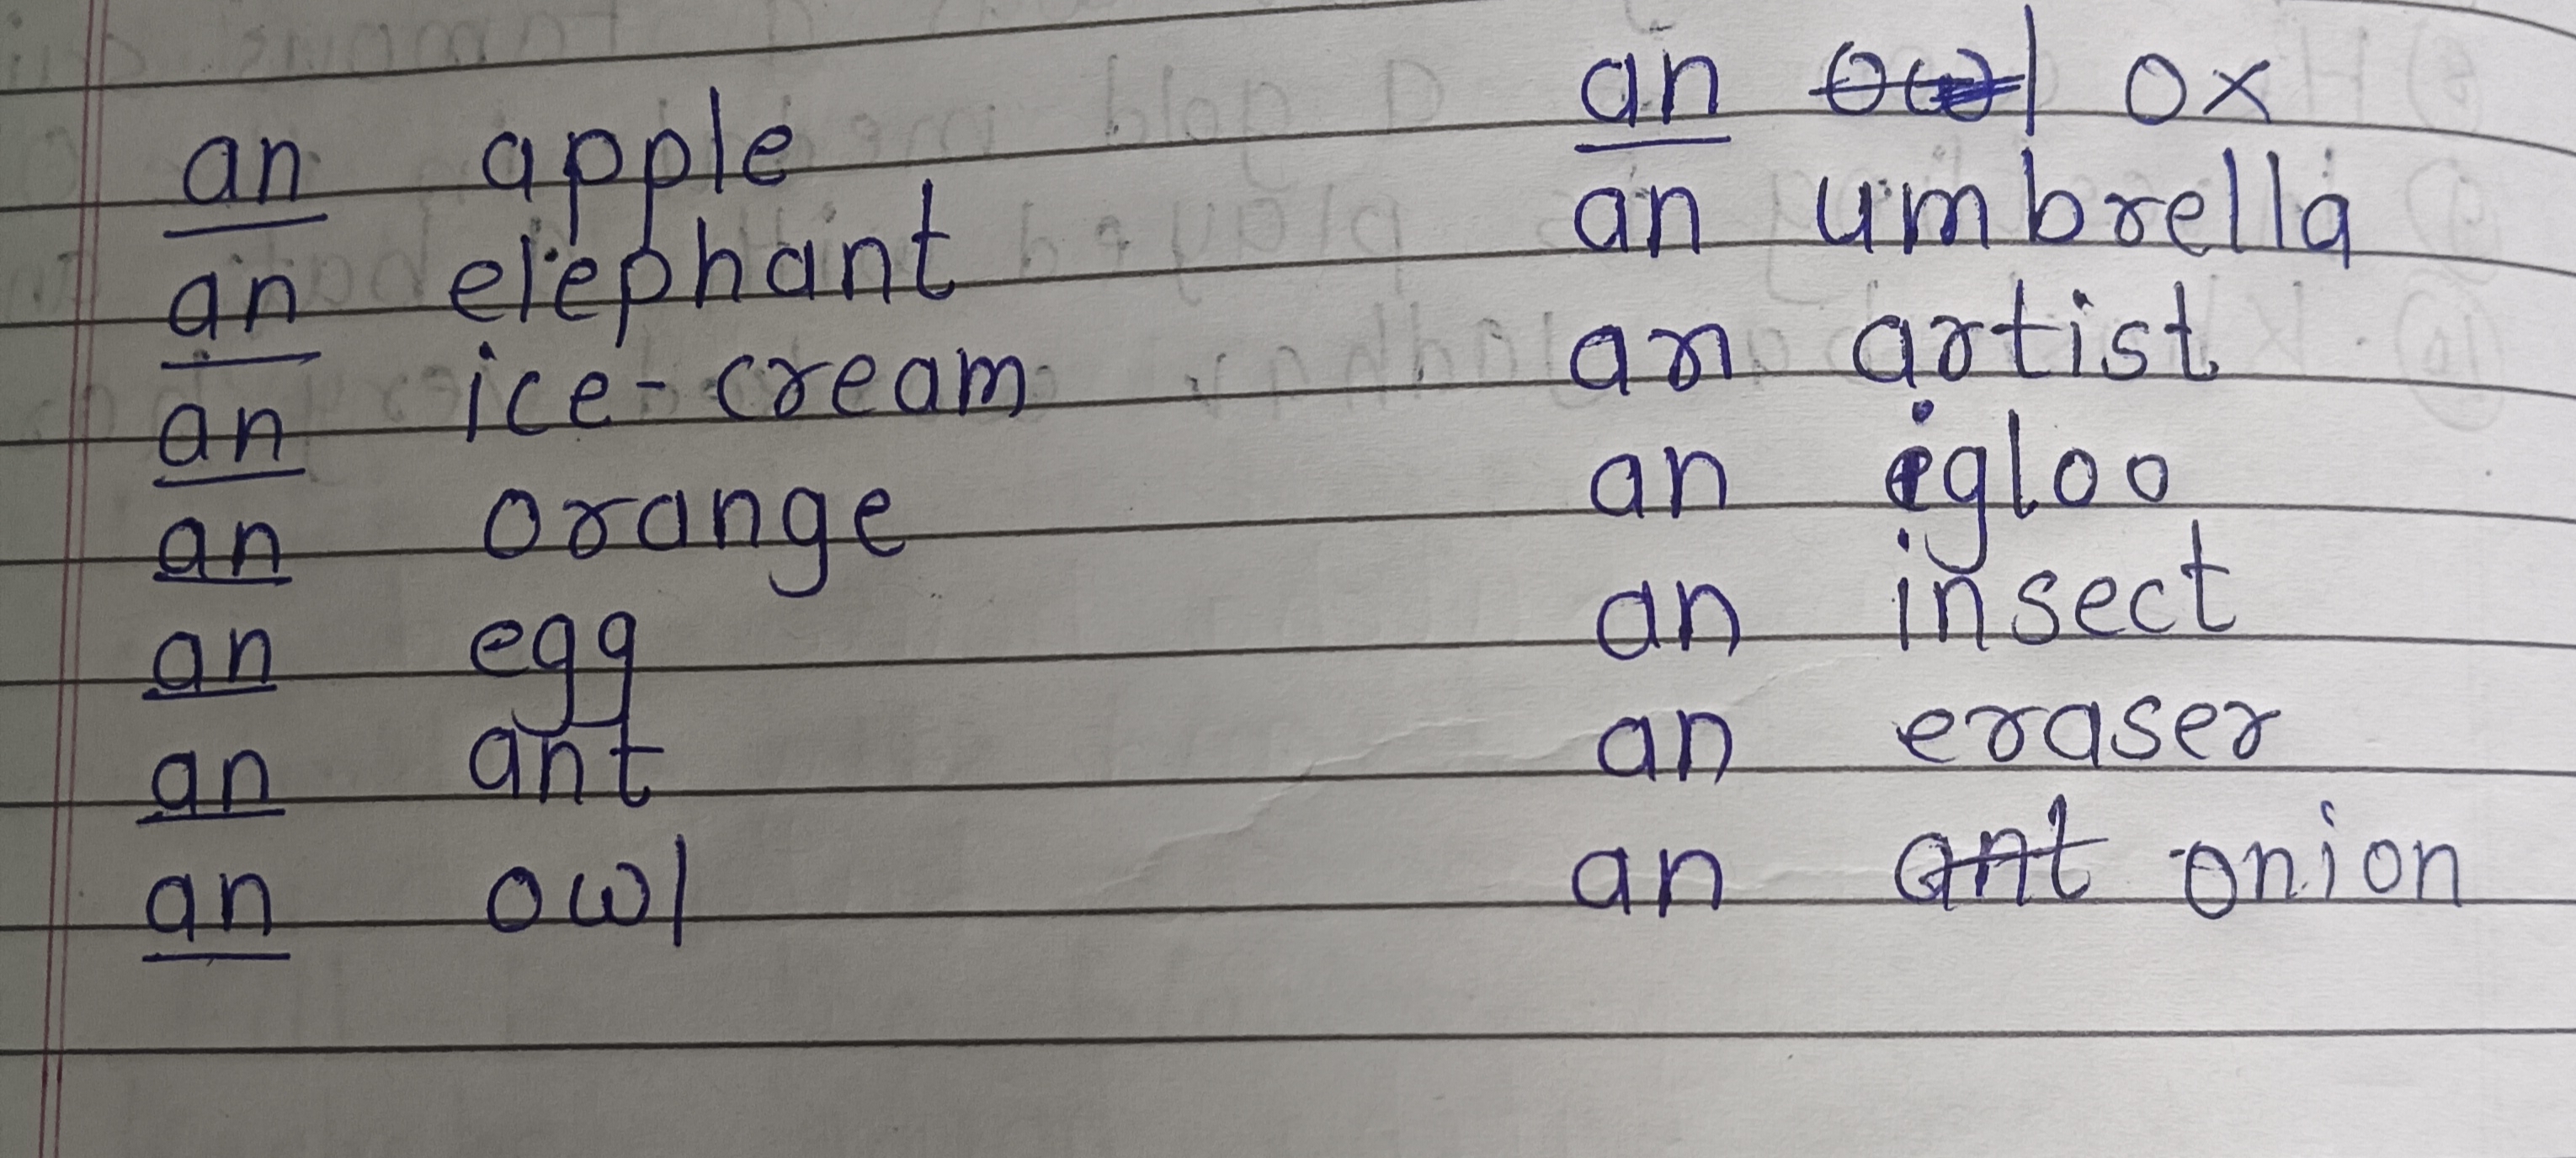 an apple
an elephant
an ice-cream
an orange
an egg
an ant
an owl
an owl ox
an umbrella
an artist
an igloo
an insect
an eraser
an ant onion